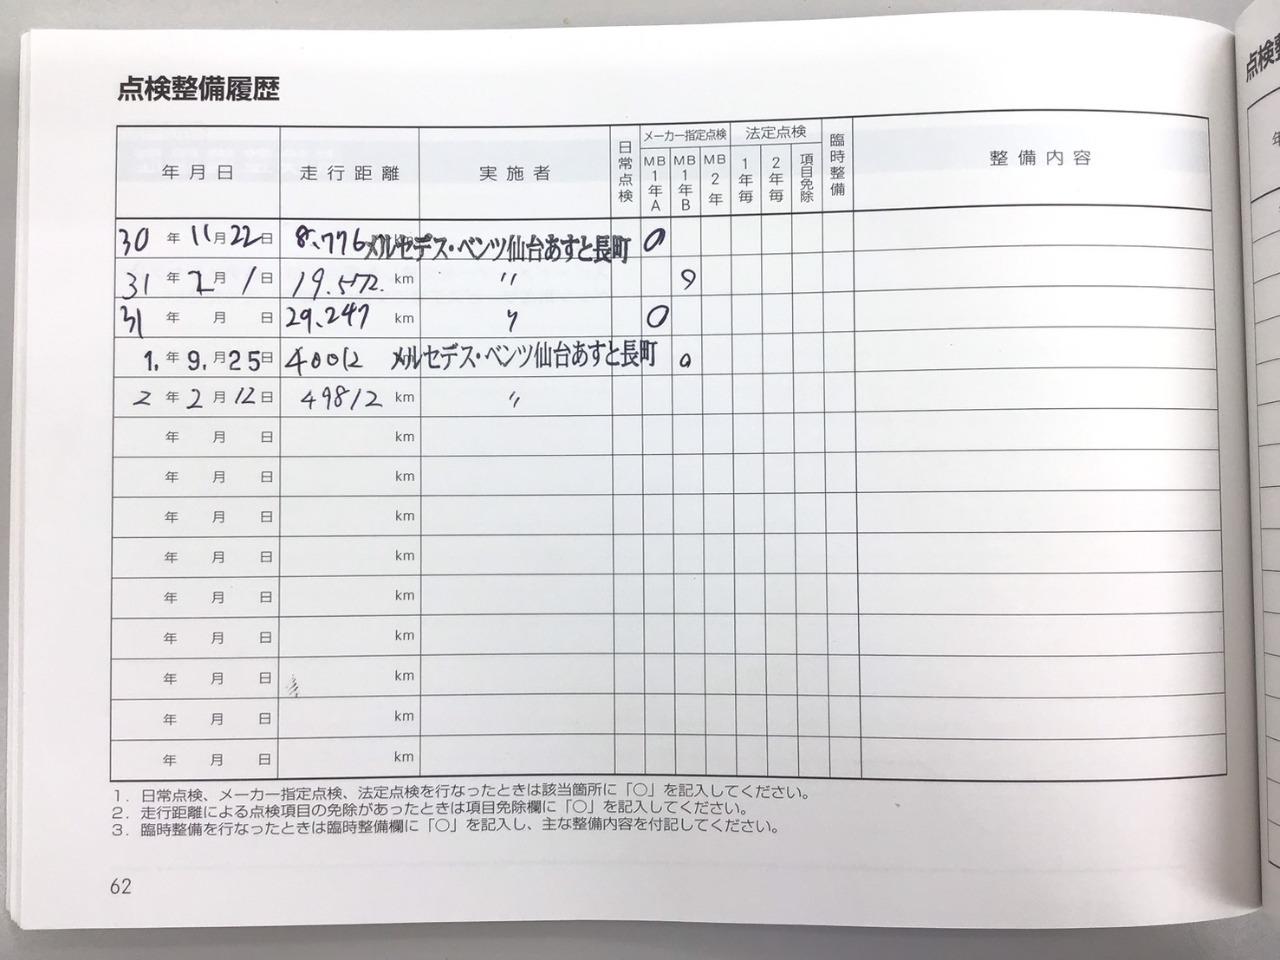 点検整備履歴
年月日 走行距離 実施者 日常点検 メーカー指定点検 MB1年A MB1年B MB2年 法定点検 1年毎 2年毎 項目免除 臨時整備 整備内容
30年11月22日 8.776 メルセデス・ベンツ仙台あすと長町 〇
31年2月1日 19.572. km 〃 〇
31年 月 日 29.247 km 〃 〇
1.年9.月25日 40012 メルセデス・ベンツ仙台あすと長町 〇
2年2月12日 49812 km 〃
年 月 日 km
年 月 日 km
年 月 日 km
年 月 日 km
年 月 日 km
年 月 日 km
年 月 日 km
年 月 日 km
年 月 日 km
1. 日常点検、メーカー指定点検、法定点検を行なったときは該当箇所に「〇」を記入してください。
2. 走行距離による点検項目の免除があったときは項目免除欄に「〇」を記入してください。
3. 臨時整備を行なったときは臨時整備欄に「〇」を記入し、主な整備内容を付記してください。
62
点検